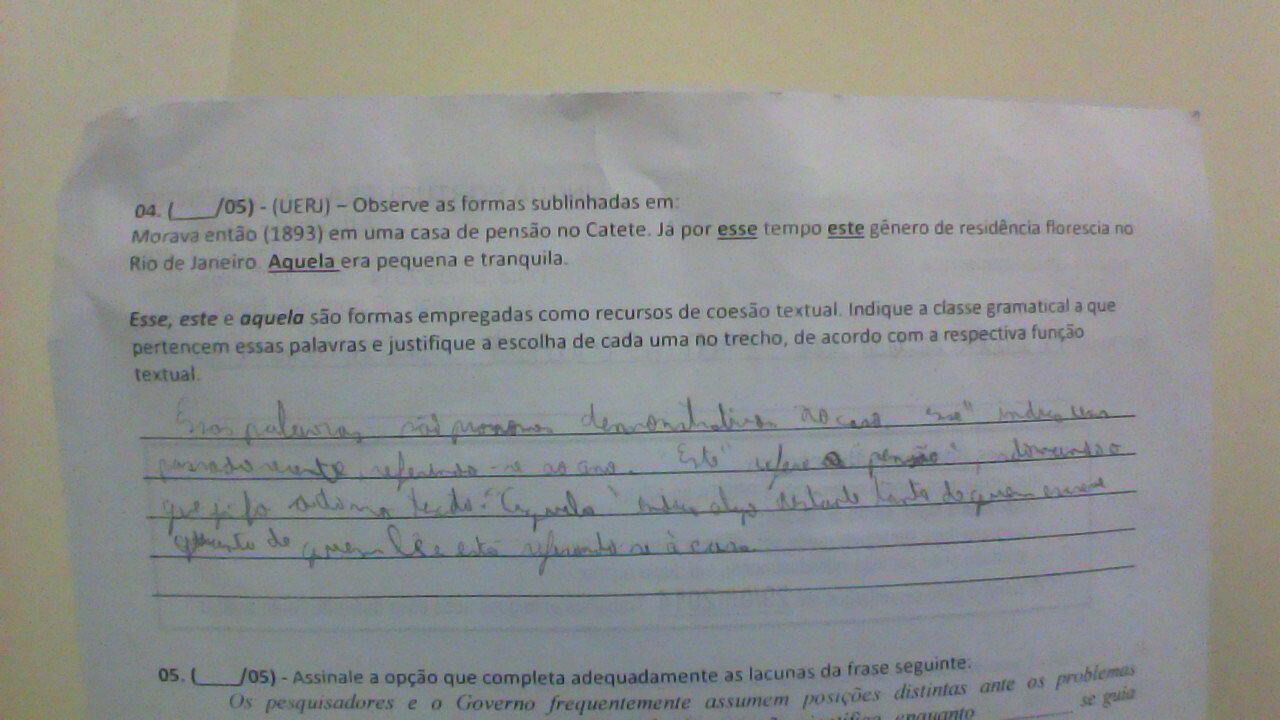 04. (____/05) - (UERJ) – Observe as formas sublinhadas em:
Morava então (1893) em uma casa de pensão no Catete. Já por esse tempo este gênero de residência florescia no
Rio de Janeiro. Aquela era pequena e tranquila.
Esse, este e aquela são formas empregadas como recursos de coesão textual. Indique a classe gramatical a que
pertencem essas palavras e justifique a escolha de cada uma no trecho, de acordo com a respectiva função
textual.
Essas palavras são pronomes demonstrativos. No caso, "Esse" indica um
passado recente, referindo-se ao ano. "Este" refere a "pensão",
que já foi "Aquela" indica algo distante tanto de quem escreve
quanto de quem lê e está referindo-se à casa.
05. (____/05) - Assinale a opção que completa adequadamente as lacunas da frase seguinte:
Os pesquisadores e o Governo frequentemente assumem posições distintas ante os problemas
enquanto ________ se guia